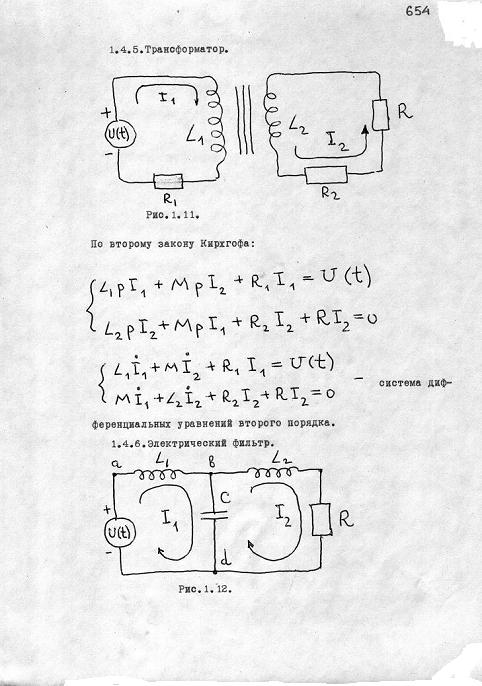 654
1.4.5.Трансформатор.
I₁
+
U(t)
-
L₁
R₁
L₂
I₂
R
R₂
Рис.1.11.
По второму закону Кирхгофа:
L₁pI₁ + MpI₂ + R₁I₁ = U(t)
L₂pI₂ + MpI₁ + R₂I₂ + RI₂ = 0
L₁İ₁ + Mİ₂ + R₁I₁ = U(t)
Mİ₁ + L₂İ₂ + R₂I₂ + RI₂ = 0
– система диф-
ференциальных уравнений второго порядка.
1.4.6.Электрический фильтр.
a L₁ b L₂
+
U(t)
-
I₁
C
I₂
R
d
Рис.1.12.